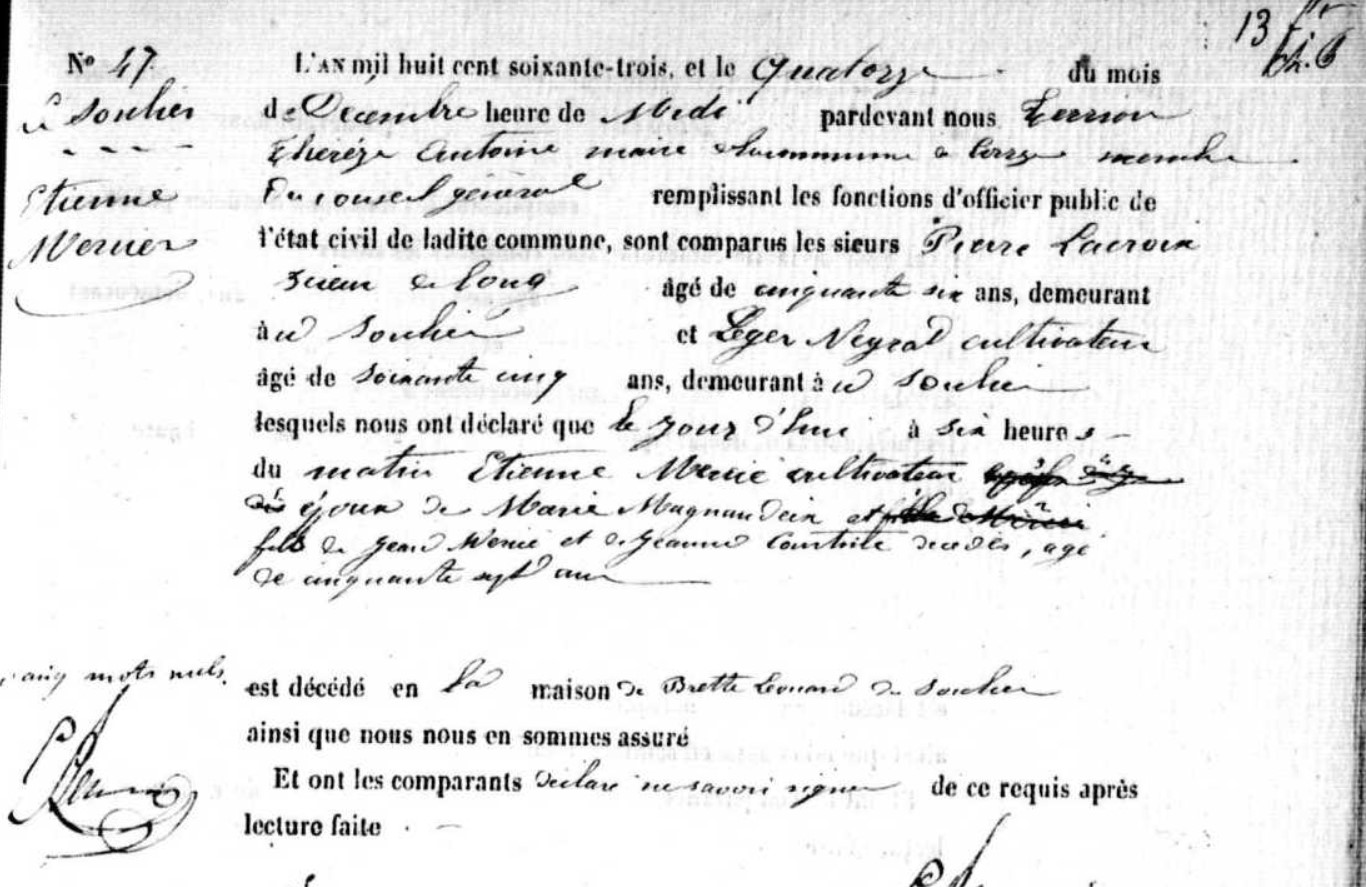 13
N° 47
L'AN mil huit cent soixante-trois, et le Quatorze du mois
Le Soulier
de Décembre heure de Midi pardevant nous Terrion
Thérèze Antoine maire de la commune de membre
Etienne
Du conseil général remplissant les fonctions d'officier public de
Mercier
l'état civil de ladite commune, sont comparus les sieurs Pierre Lacroix
Scieur de Long âgé de cinquante six ans, demeurant
à u Soulier et Léger Neyrat cultivateur
âgé de Soixante cinq ans, demeurant à u Soulier
lesquels nous ont déclaré que le jour d'hui à Six heures
du matin Etienne Mercié cultivateur
époux de Marie Magnaudeix et
fils de Jean Mercié et de Jeanne décédés, agé
de cinquante sept ans
cinq mots nuls.
est décédé en la maison de Brette Léonard du Soulier
ainsi que nous nous en sommes assuré
Et ont les comparants déclaré ne savoir signer de ce requis après
lecture faite . —